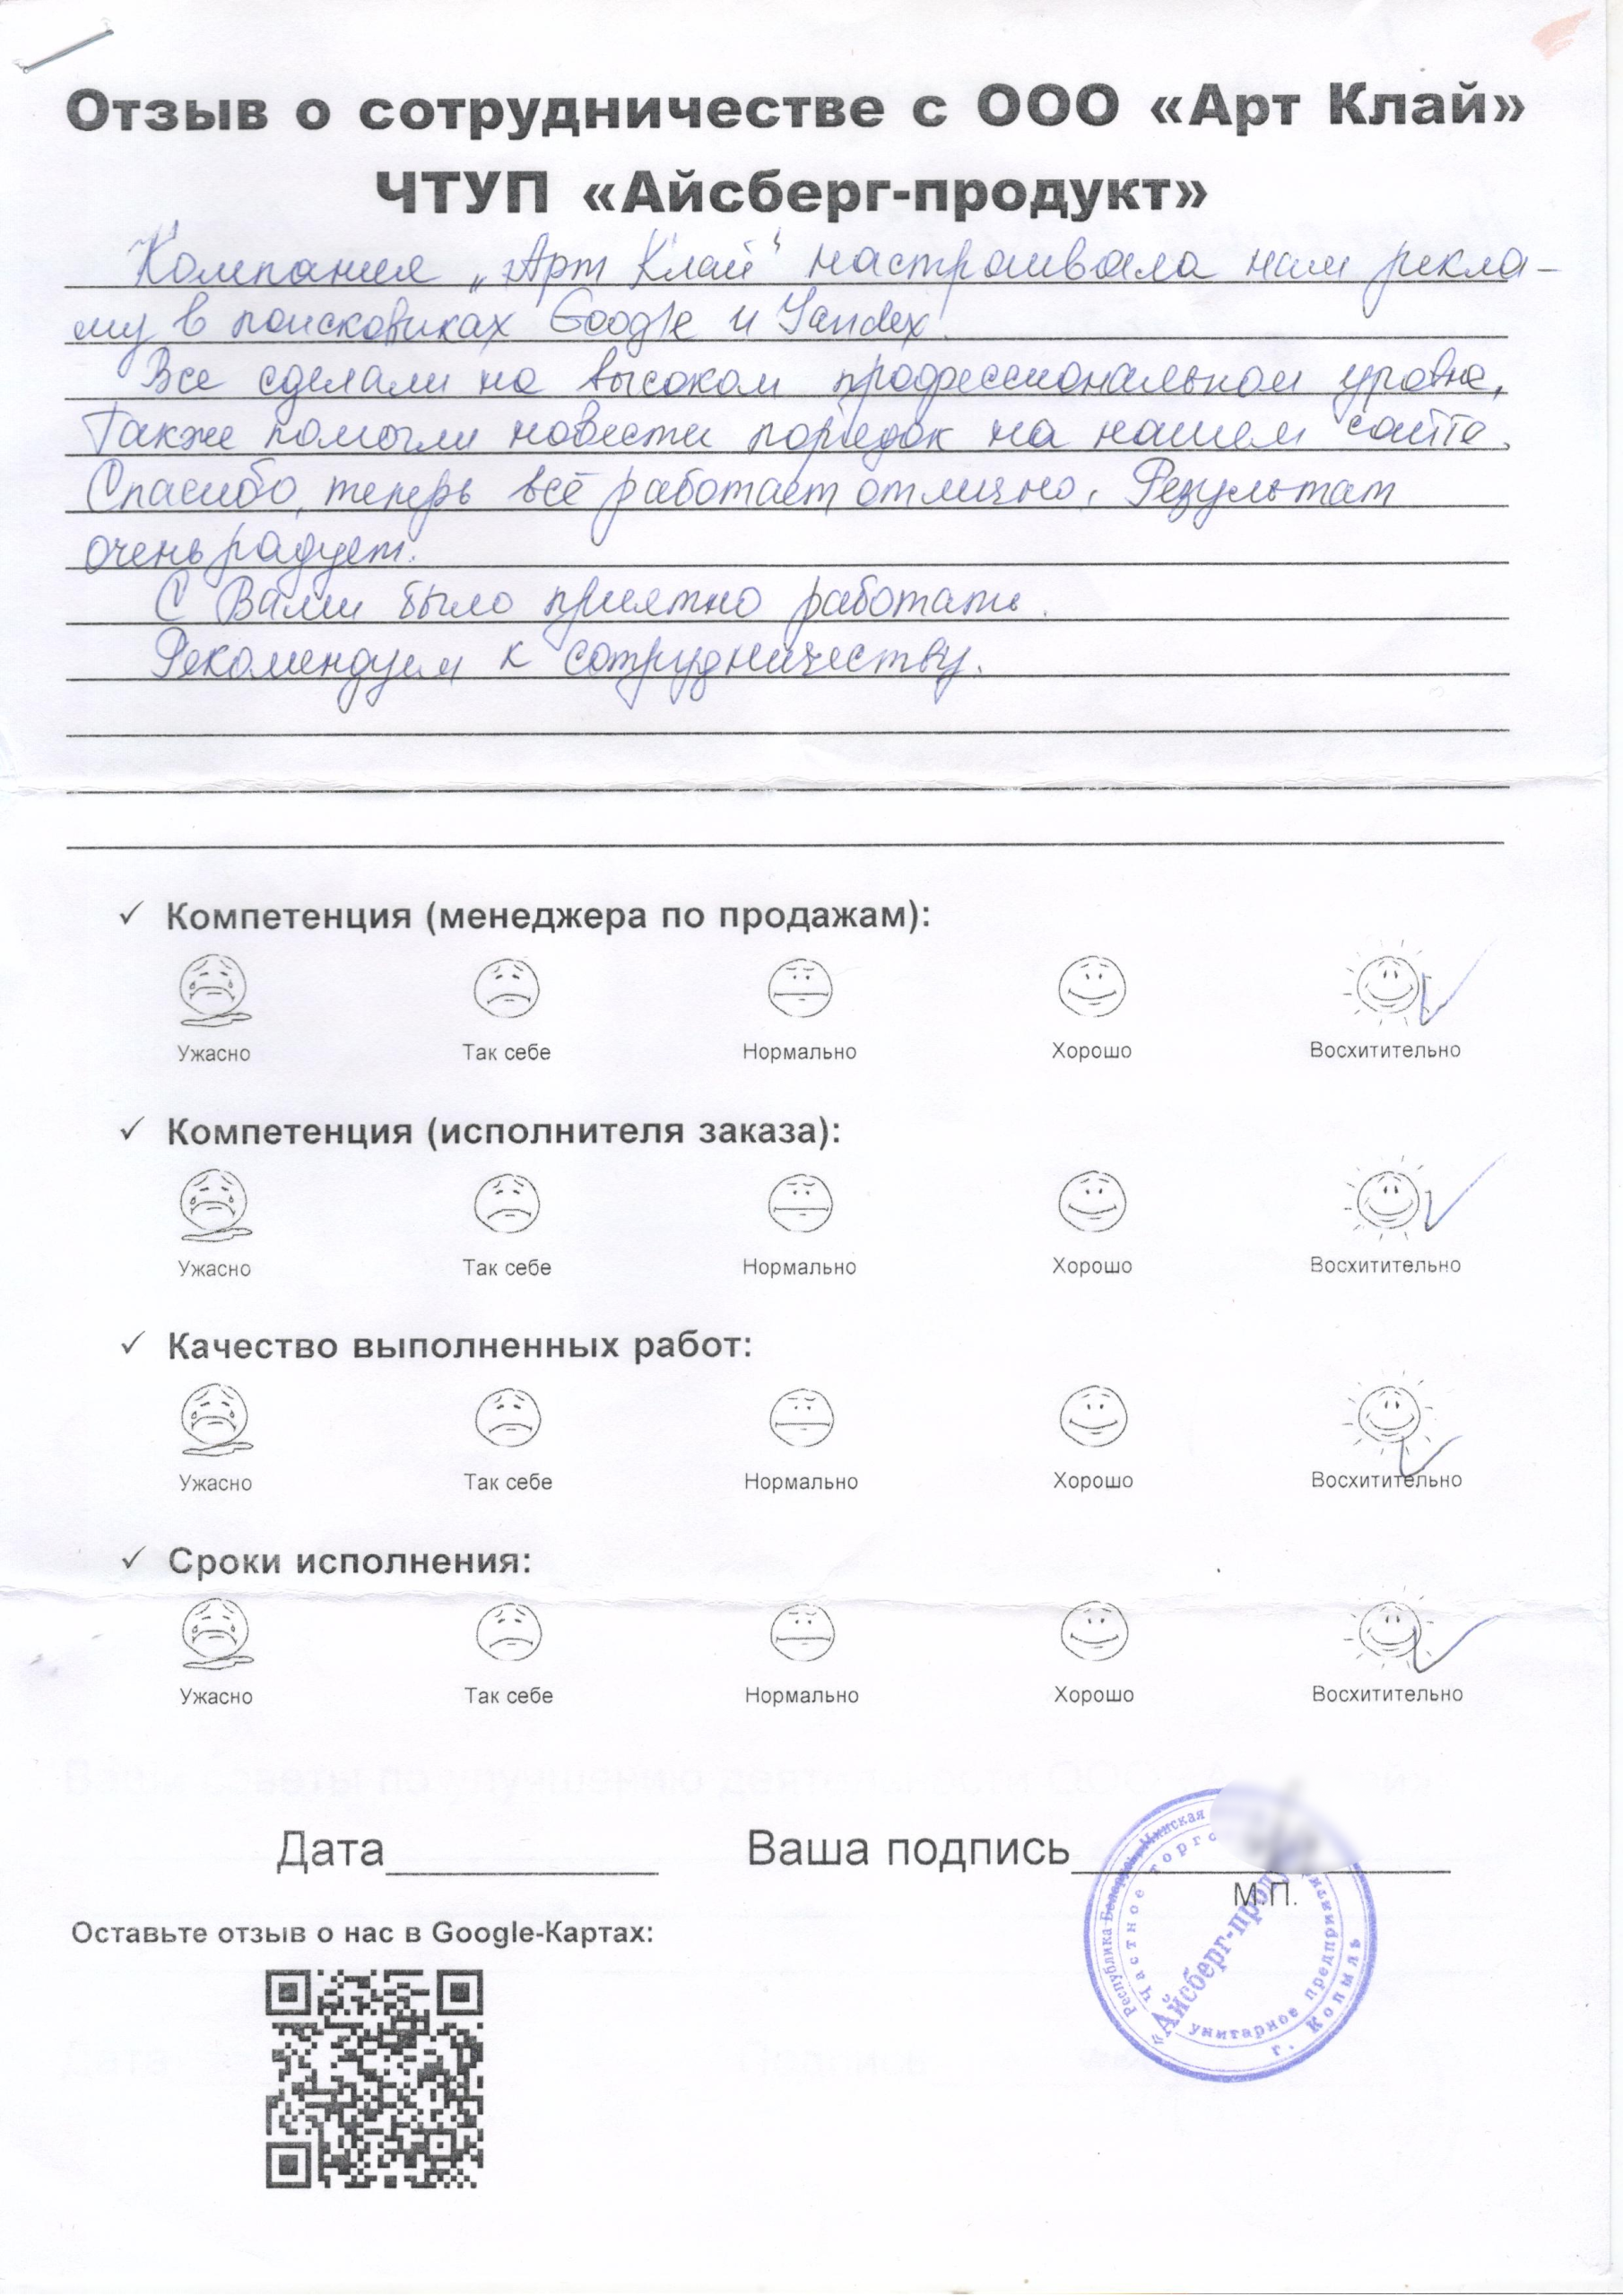 Отзыв о сотрудничестве с ООО «Арт Клай»
ЧТУП «Айсберг-продукт»
Компания „Арт Клай" настраивала нам рекла-
му в поисковиках Google и Yandex.
Все сделали на высоком профессиональном уровне.
Также помогли навести порядок на нашем сайте.
Спасибо, теперь всё работает отлично. Результат
очень радует.
С Вами было приятно работать.
Рекомендуем к сотрудничеству.
✓ Компетенция (менеджера по продажам):
Ужасно Так себе Нормально Хорошо Восхитительно
✓ Компетенция (исполнителя заказа):
Ужасно Так себе Нормально Хорошо Восхитительно
✓ Качество выполненных работ:
Ужасно Так себе Нормально Хорошо Восхитительно
✓ Сроки исполнения:
Ужасно Так себе Нормально Хорошо Восхитительно
Дата Ваша подпись
М.П.
Республика Беларусь, Минская
Частное
унитарное предприятие
«Айсберг-продукт
г. Копыль
Оставьте отзыв о нас в Google-Картах: